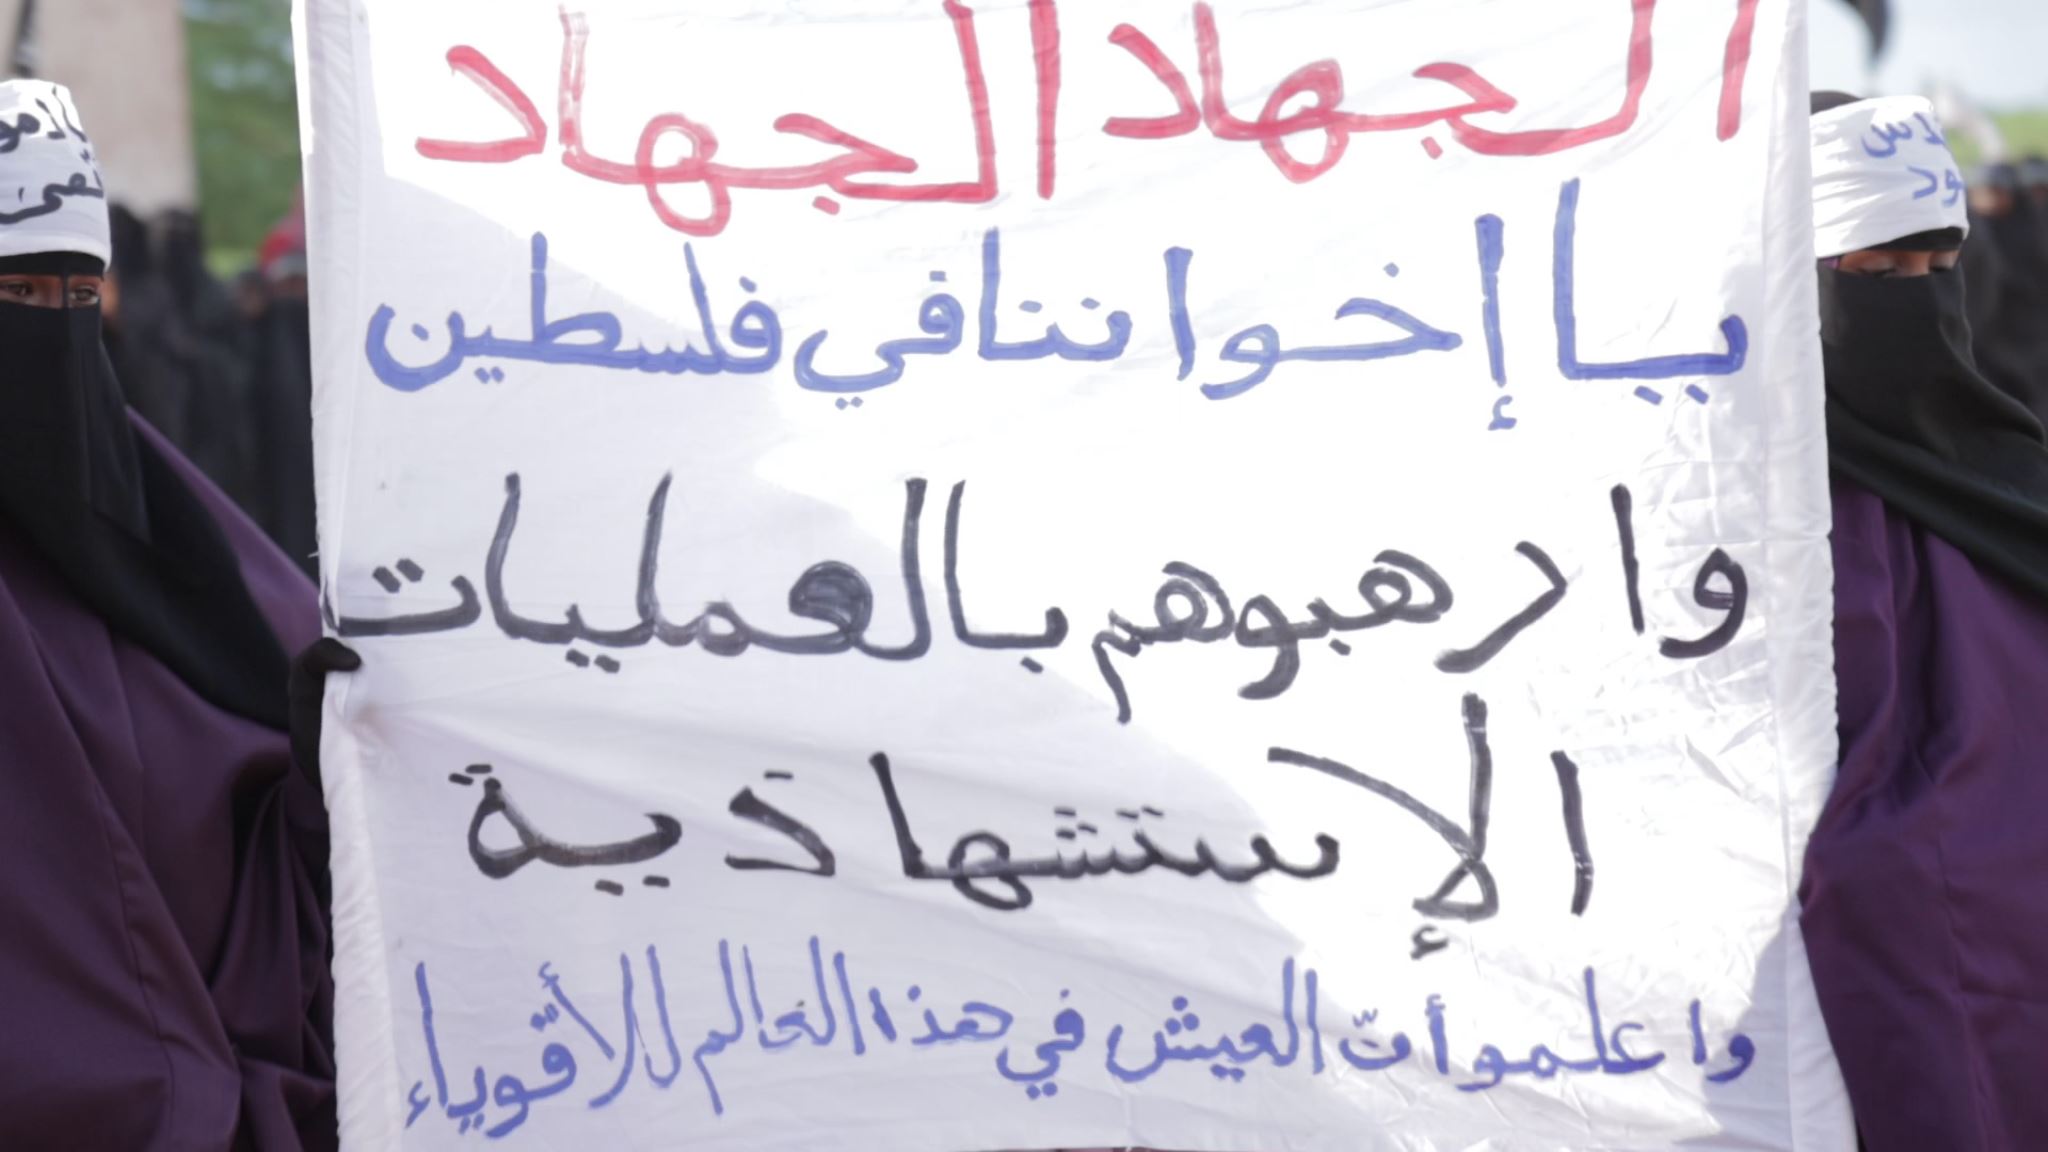 الجهاد الجهاد
يا إخواننا في فلسطين
وارهبوهم بالعمليات
الإستشهادية
واعلمو أنّ العيش في هذا العالم للأقوياء